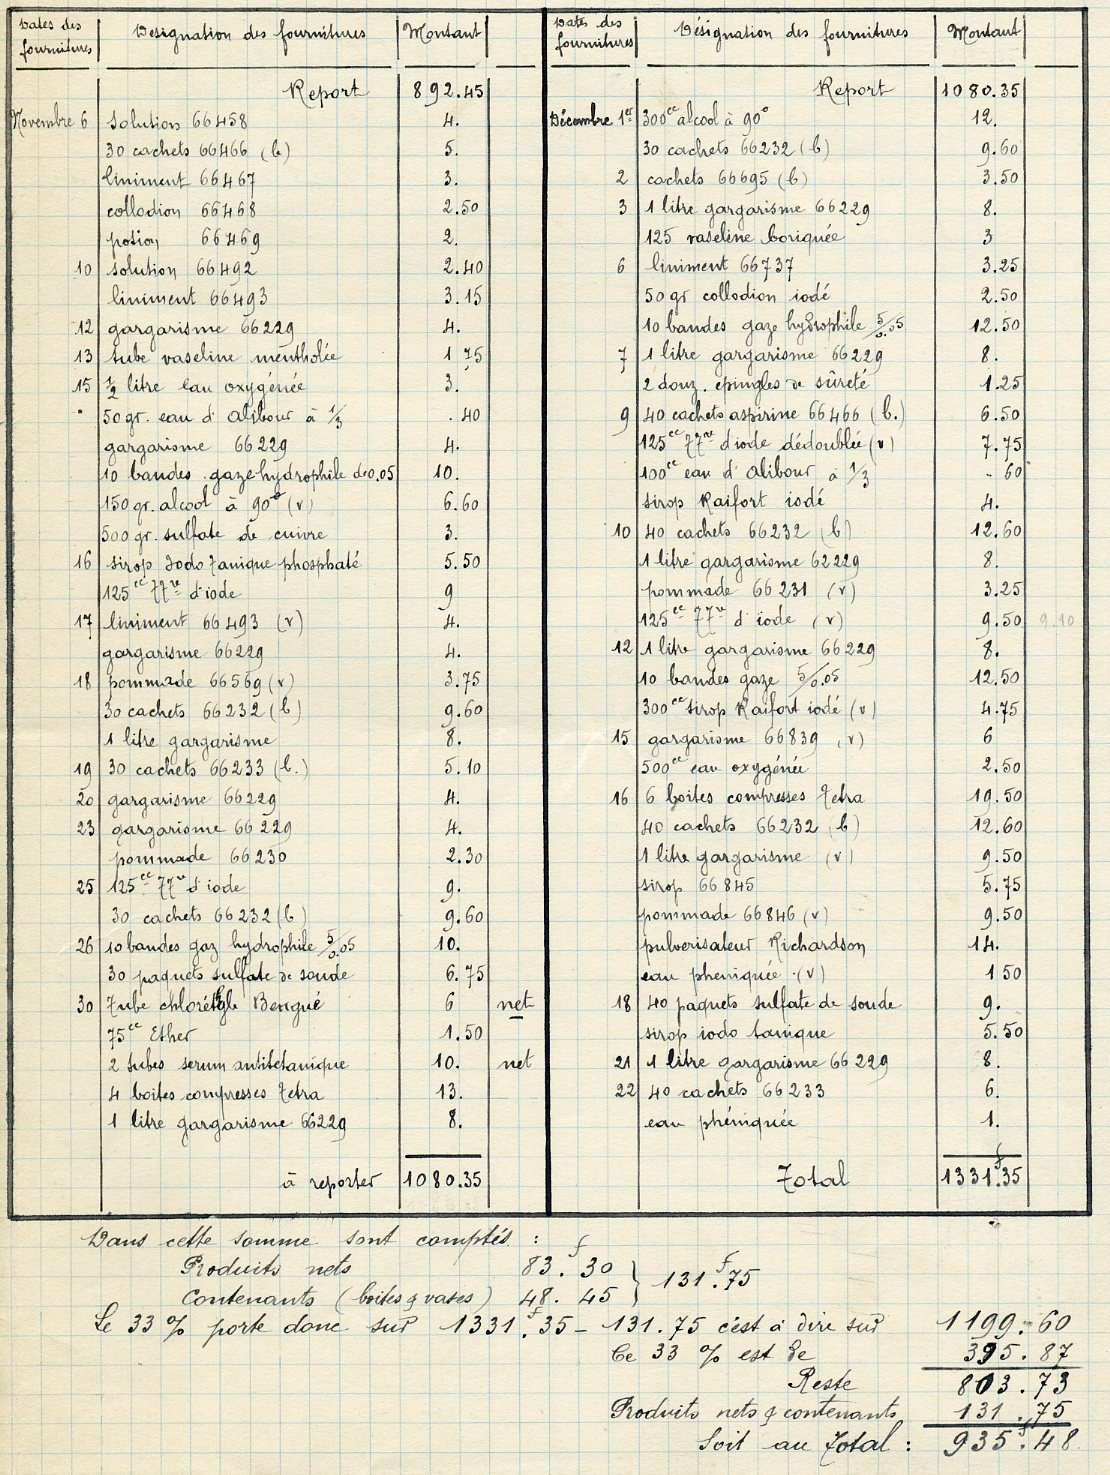 Dates des fournitures | Désignation des fournitures | Montant
Report 892.45
Novembre 6 solution 66458 4.
30 cachets 66466 (b) 5.
liniment 66467 3.
collodion 66468 2.50
potion 66469 2.
10 solution 66492 2.40
liniment 66493 3.15
12 gargarisme 66229 4.
13 tube vaseline mentholée 1 75
15 ½ litre eau oxygénée 3.
50 gr. eau d'Alibour à 1/3 .40
gargarisme 66229 4.
10 bandes gaze hydrophile de 0.05 10.
150 gr. alcool à 90° (v) 6.60
500 gr. sulfate de cuivre 3.
16 sirop Iodo Tanique phosphaté 5.50
125 cc TTre d'iode 9
17 liniment 66493 (v) 4.
gargarisme 66229 4.
18 pommade 66569 (v) 3.75
30 cachets 66232 (b) 9.60
1 litre gargarisme 8.
19 30 cachets 66233 (b.) 5.10
20 gargarisme 66229 4.
23 gargarisme 66229 4.
pommade 66230 2.30
25 125 cc TTre d'iode 9.
30 cachets 66232 (b) 9.60
26 10 bandes gaz hydrophile 5/0.05 10.
30 paquets sulfate de soude 6.75
30 Tube chloréthyle Bengué 6 net
75 cc Ether 1.50
2 tubes serum antitétanique 10. net
4 boites compresses Tetra 13.
1 litre gargarisme 66229 8.
à reporter 1080.35
Dates des fournitures | Désignation des fournitures | Montant
Report 1080.35
Décembre 1er 300 cc alcool à 90° 12.
30 cachets 66232 (b) 9.60
2 cachets 66695 (b) 3.50
3 1 litre gargarisme 66229 8.
125 vaseline boriquée 3
6 liniment 66737 3.25
50 gr collodion iodé 2.50
10 bandes gaze hydrophile 5/0.05 12.50
7 1 litre gargarisme 66229 8.
2 douz. epingles de sûreté 1.25
9 40 cachets aspirine 66466 (b.) 6.50
125 cc TTre d'iode dédoublée (v) 7.75
100 cc eau d'Alibour à 1/3 . 60
sirop Raifort iodé 4.
10 40 cachets 66232 (b) 12.60
1 litre gargarisme 62229 8.
pommade 66231 (v) 3.25
125 cc TTre d'iode (v) 9.50 9.10
12 1 litre gargarisme 66229 8.
10 bandes gaze 5/0.05 12.50
300 cc sirop Raifort iodé (v) 4.75
15 gargarisme 66839 (v) 6
500 cc eau oxygénée 2.50
16 6 boites compresses Tetra 19.50
40 cachets 66232 (b) 12.60
1 litre gargarisme (v) 9.50
sirop 66845 5.75
pommade 66846 (v) 9.50
pulverisateur Richardson 14.
eau pheniquée (v) 1 50
18 40 paquets sulfate de soude 9.
sirop iodo tanique 5.50
21 1 litre gargarisme 66229 8.
22 40 cachets 66233 6.
eau phéniquée 1.
Total 1331f.35
Dans cette somme sont comptés :
Produits nets 83f.30
Contenants (boites & vases) 48.45 } 131f.75
Le 33 % porte donc sur 1331f.35 – 131.75 c'est à dire sur 1199.60
Ce 33 % est de 395.87
Reste 803.73
Produits nets & contenants 131.75
Soit au Total : 935f.48